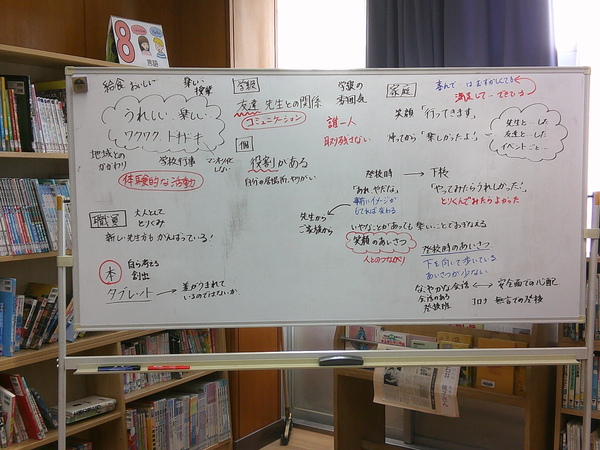 8
言語
給食 おいしい
楽しい
授業
うれしい・楽しい
ワクワク、ドキドキ
地域との
かかわり
学校行事
マンネリ化
しない
体験的な活動
職員
大人として
とりくみ
新しい先生方も がんばっている!
本
自ら考える
創出
タブレット → 差がうまれて
いるのではないか
学級
友達 先生との関係
コミュニケーション
個
役割がある
自分の居場所、やりがい
学園の
誰一人
取り残さない
家庭
喜んで はむずかしくても
満足して…できている
笑顔「行ってきます」
帰ってから「楽しかったよ」
先生と…した
友達と…した
イベントごと…
登校時 → 下校
「あれ、やだな」
「やってみたらうれしかった!」
とりくんでみたらよかった
先生から
ご家族から
いやなことがあっても 楽しいことでおぎなえる
笑顔のあいさつ
人とのつながり
登校時のあいさつ
下を向いて歩いている
あいさつが少ない
なごやかな会話 ←→ 安全面では心配
会話のある
登校班
コロナ 無言での登校